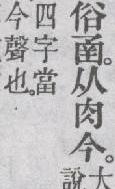 俗圅。从肉今。
大
說
四字當
今聲也。